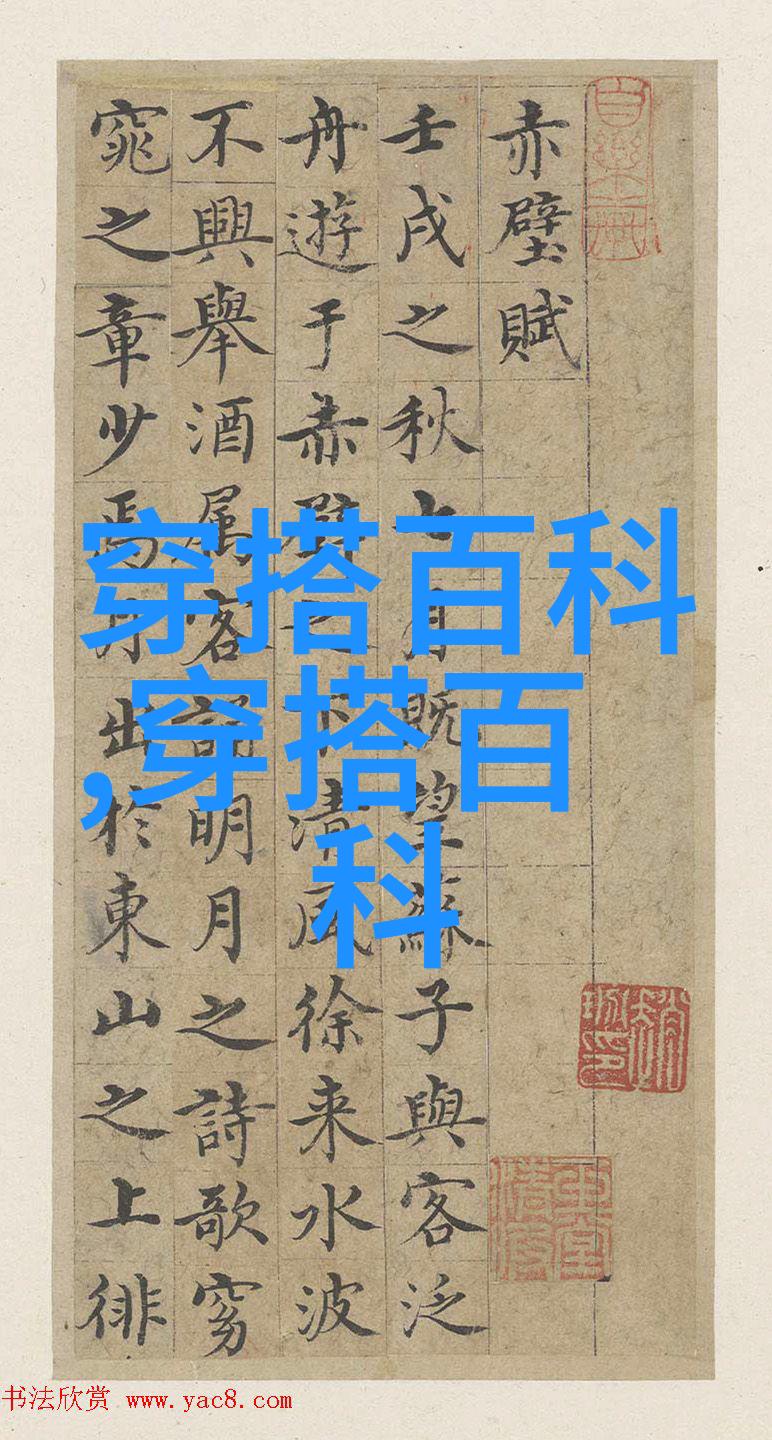 赤壁賦
壬戌之秋七月既望蘇子與客泛
舟遊于赤壁之下清風徐来水波
不興舉酒属客誦明月之詩歌窈
窕之章少焉月出於東山之上徘
穿搭百科
,穿搭百
科
书法欣赏 www.yac8.com